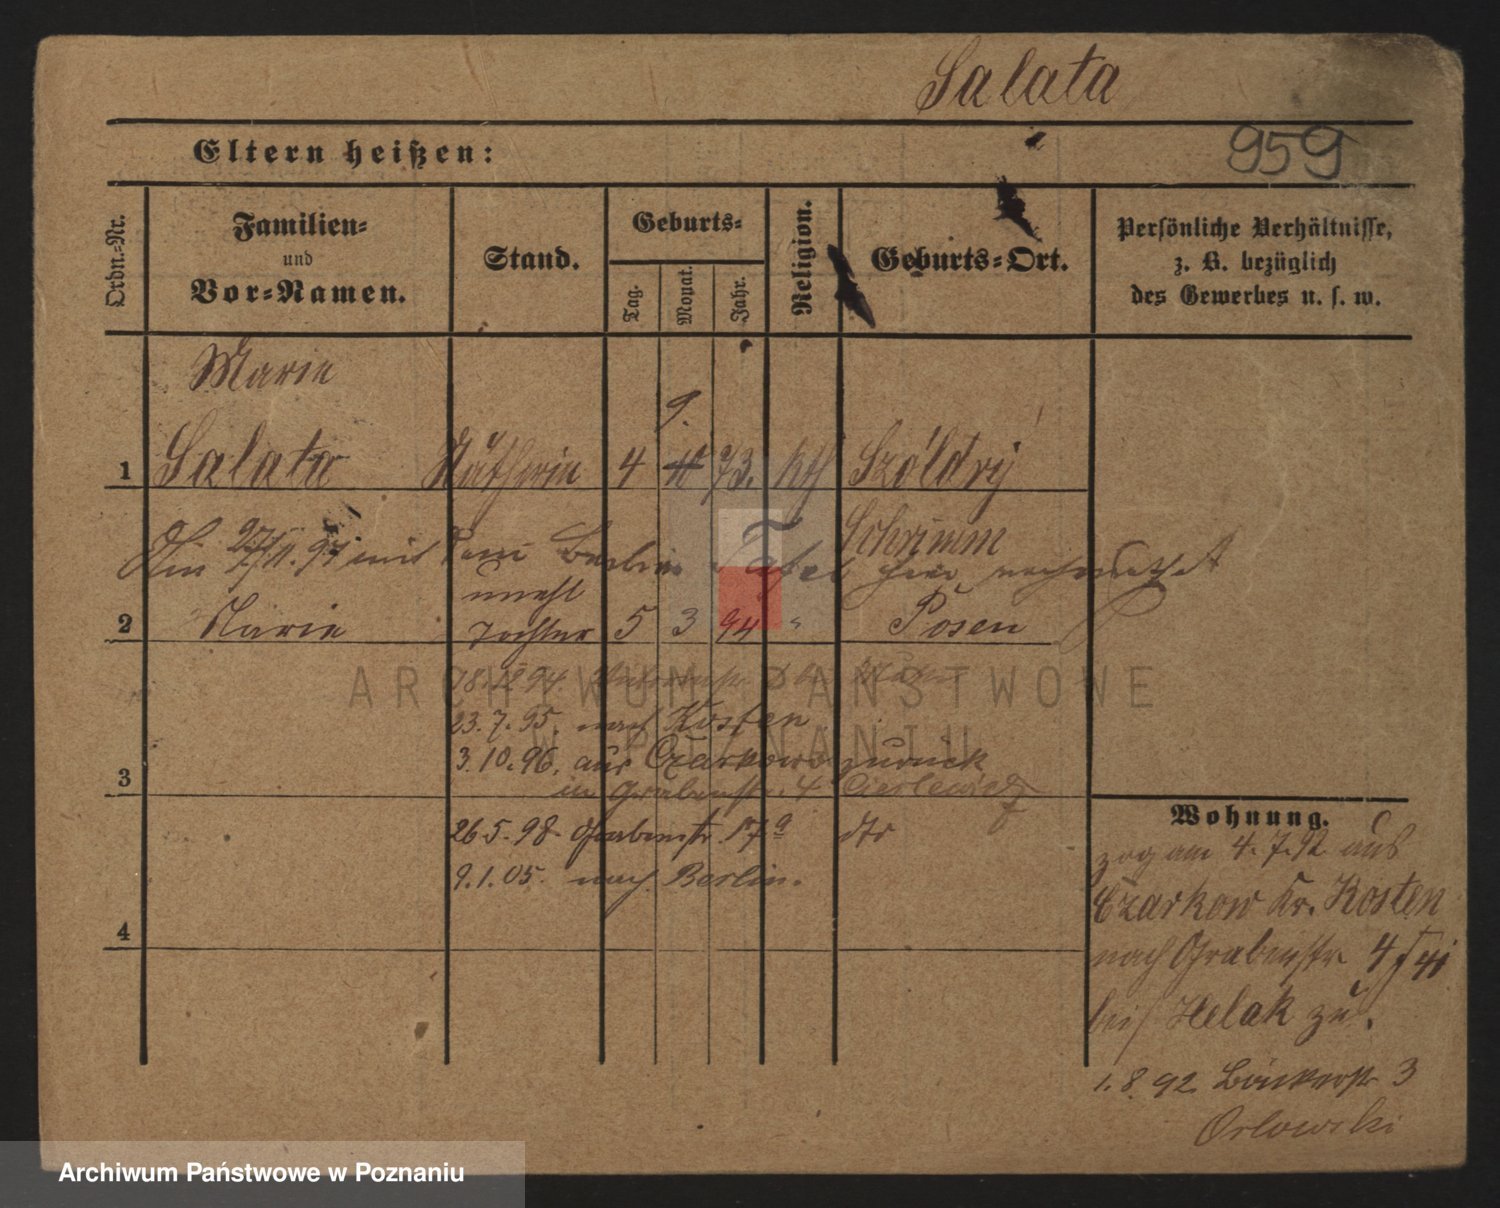 Salata
959
Eltern heißen:
Ordn.-Nr.
Familien-
und
Vor-Namen.
Stand.
Geburts-
Tag.
Monat.
Jahr.
Religion.
Geburts-Ort.
Persönliche Verhältnisse,
z. B. bezüglich
des Gewerbes u. s. w.
Marie
9.
1 Salata Näherin 4 73. kth Szóldry
Schrimm
27/11.97 mit Berlin hier
unehl
2 Marie Tochter 5 3 94 " Posen
94.
23.7.95. nach Kosten
3.10.96. aus Czarkow zurück
3
in Grabenstr. 4 Cieslewicz
26.5.98. Grabenstr. 17a dto
9.1.05. nach Berlin.
4
Wohnung.
zog am 4.7.92 aus
Czarkow Kr. Kosten
nach Grabenstr 4
bei Helak zu.
1.8.92 Bäckerstr 3
Orlowski
ARCHIWUM PAŃSTWOWE
W POZNANIU
Archiwum Państwowe w Poznaniu